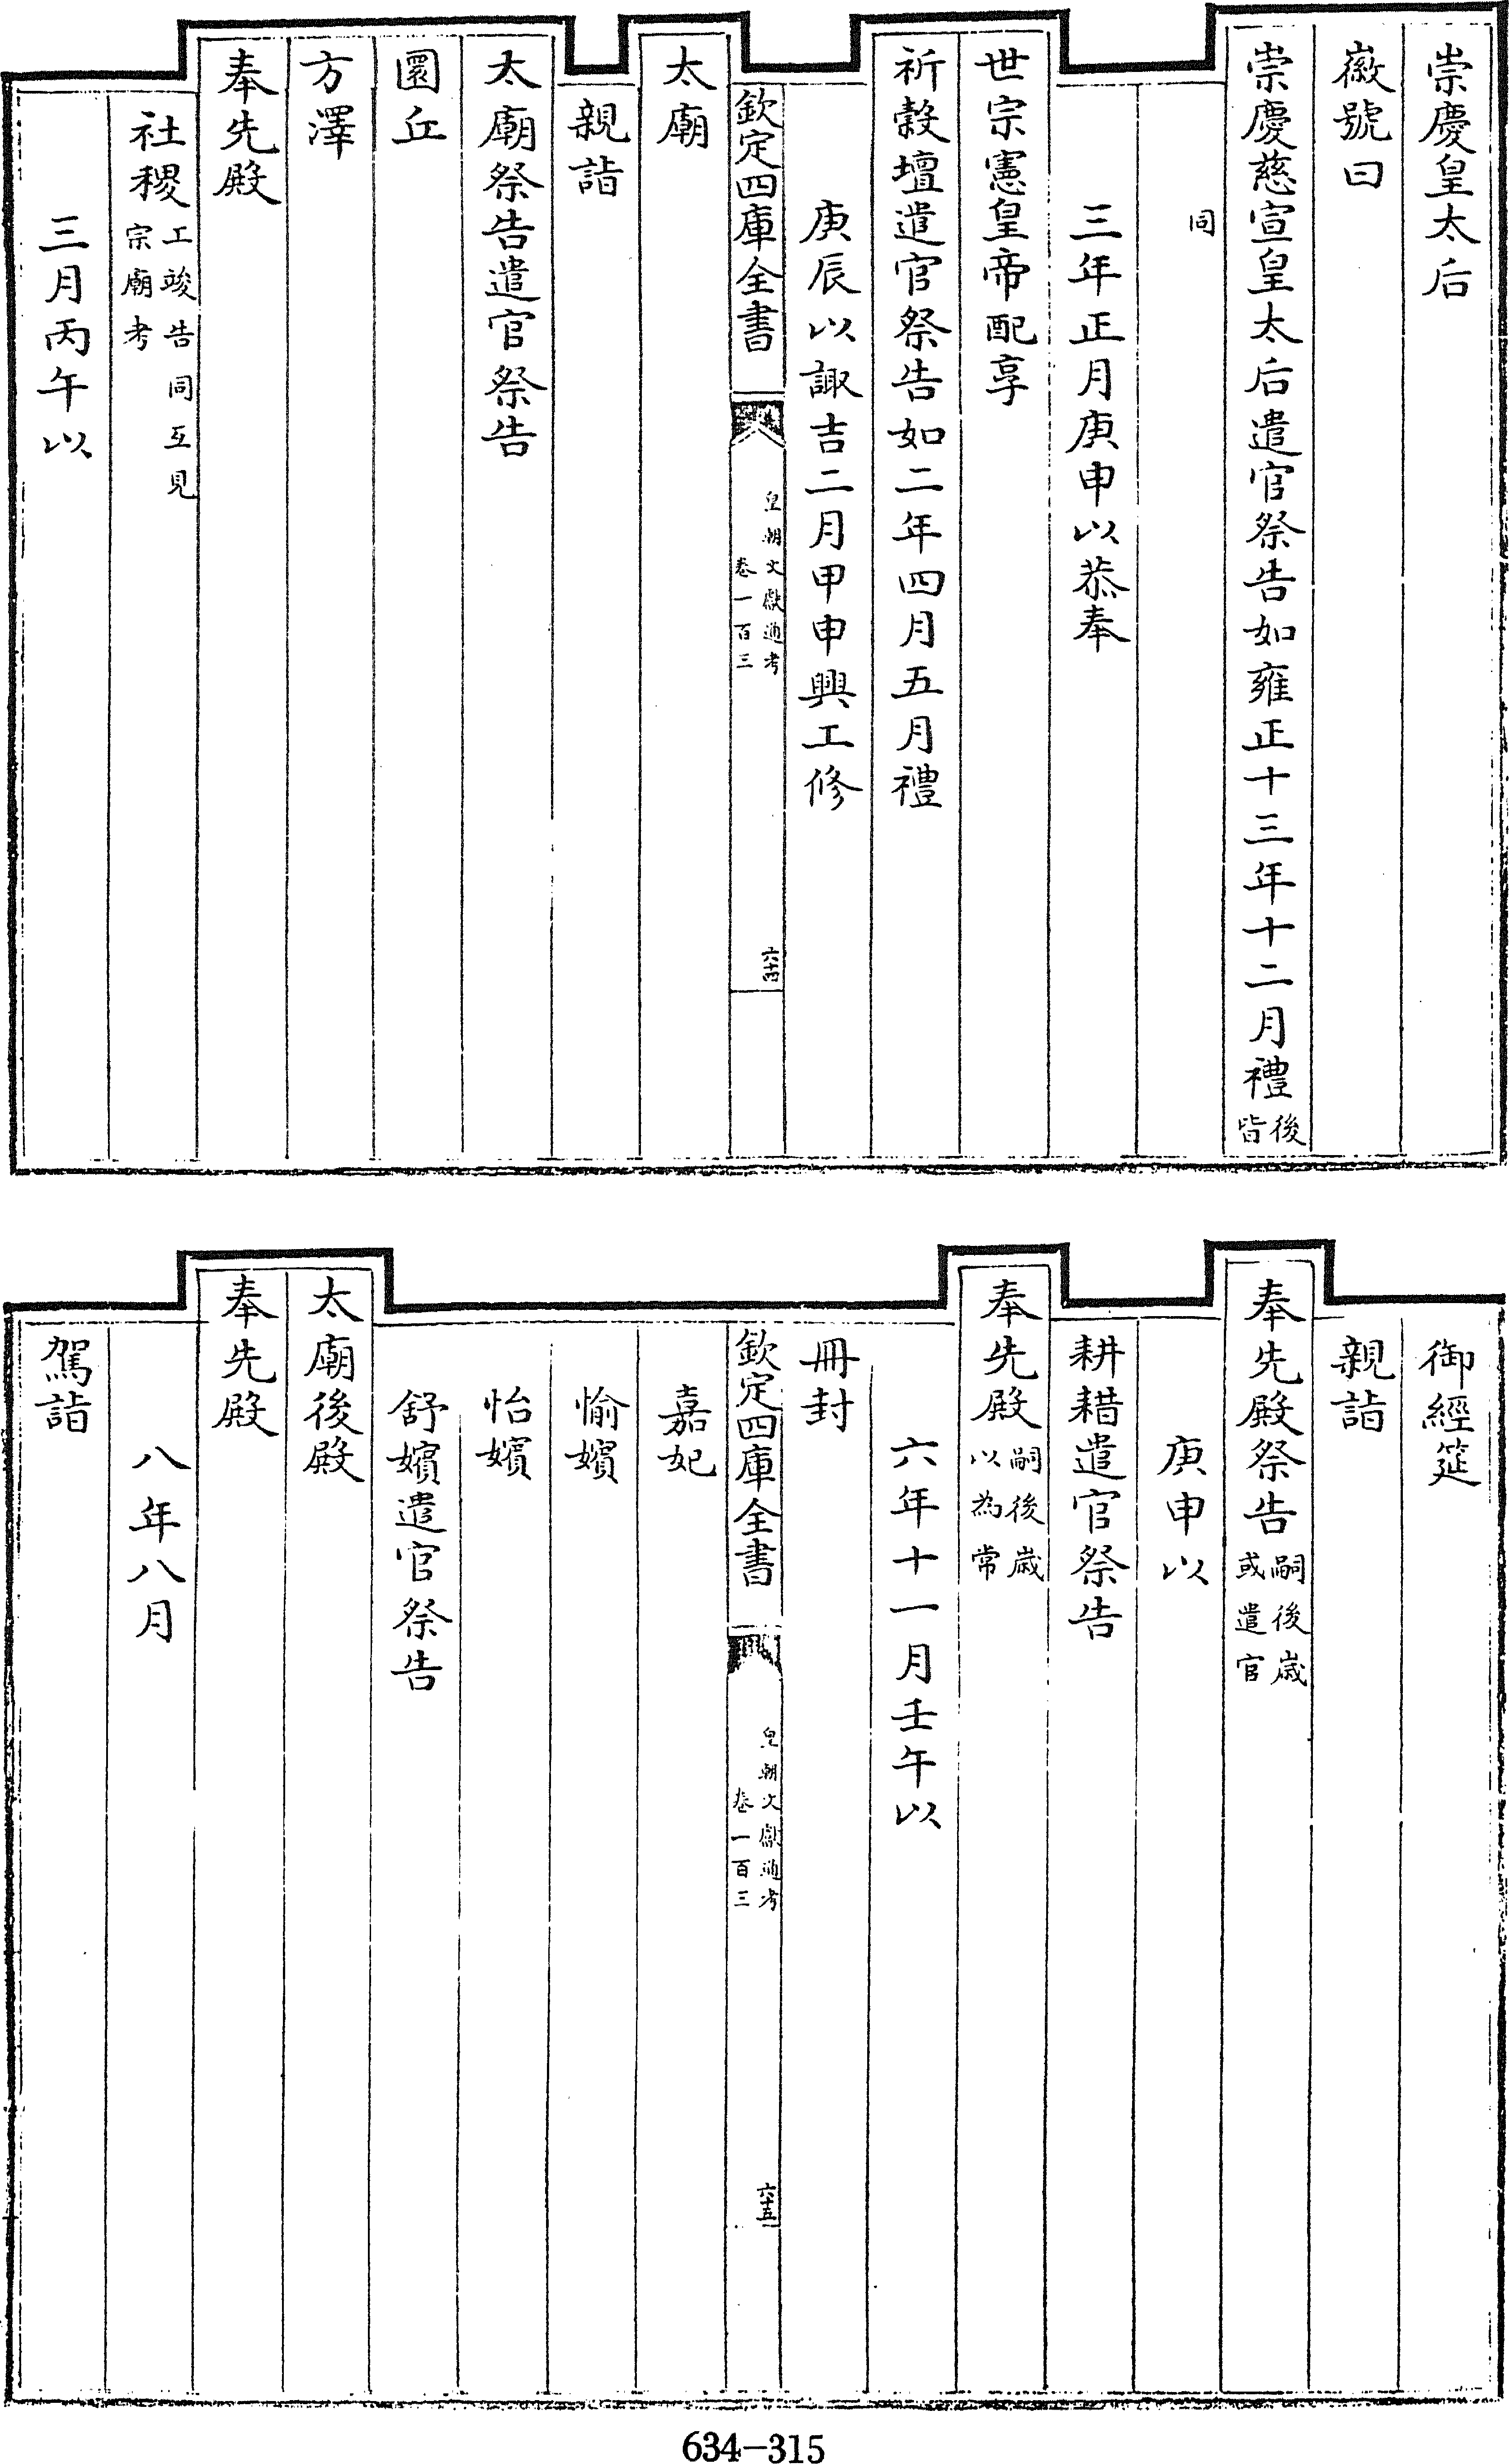 崇慶皇太后
徽號曰
崇慶慈宣皇太后遣官祭告如雍正十三年十二月禮後皆
同
三年正月庚申以恭奉
世宗憲皇帝配享
祈穀壇遣官祭告如二年四月五月禮
庚辰以諏吉二月甲申興工修
欽定四庫全書
皇朝文獻通考
卷一百三
六十四
太廟
親詣
太廟祭告遣官祭告
圜丘
方澤
奉先殿
社稷工竣告同互見宗廟考
三月丙午以
御經筵
親詣
奉先殿祭告嗣後歲或遣官
庚申以
耕耤遣官祭告
奉先殿嗣後歲以為常
六年十一月壬午以
冊封
欽定四庫全書
皇朝文獻通考
卷一百三
六十五
嘉妃
愉嬪
怡嬪
舒嬪遣官祭告
太廟後殿
奉先殿
八年八月
駕詣
634-315